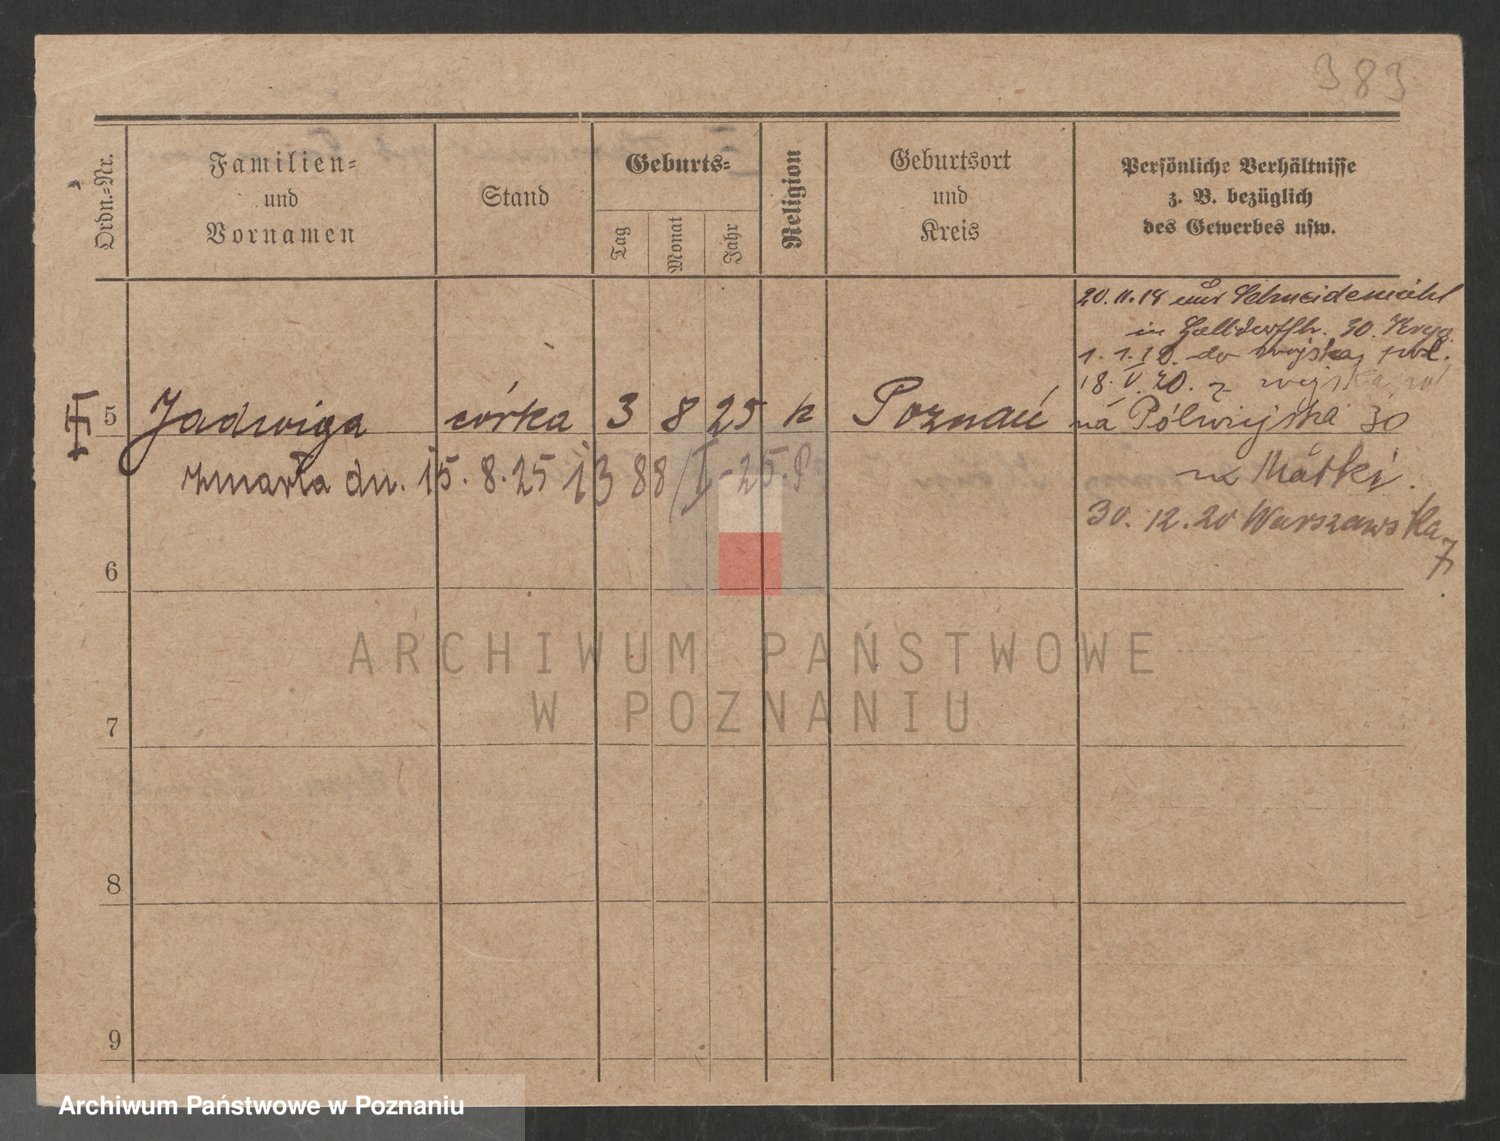 383
Ordn.-Nr.
Familien-
und
Vornamen
Stand
Geburts-
Tag
Monat
Jahr
Religion
Geburtsort
und
Kreis
Persönliche Verhältnisse
z. B. bezüglich
des Gewerbes usw.
20. 11. 18 aus Schneidemühl
in 30.
1. 1. 19. do wojska pol.
18. V. 20. z wojska pol
5 Jadwiga córka 3 8 25 k Poznań
na Półwiejska 30
zmarła dn. 15. 8. 25 1388/I-25.P
u Matki.
30. 12. 20 Warszawska
7
6
7
8
9
ARCHIWUM PAŃSTWOWE
W POZNANIU
Archiwum Państwowe w Poznaniu